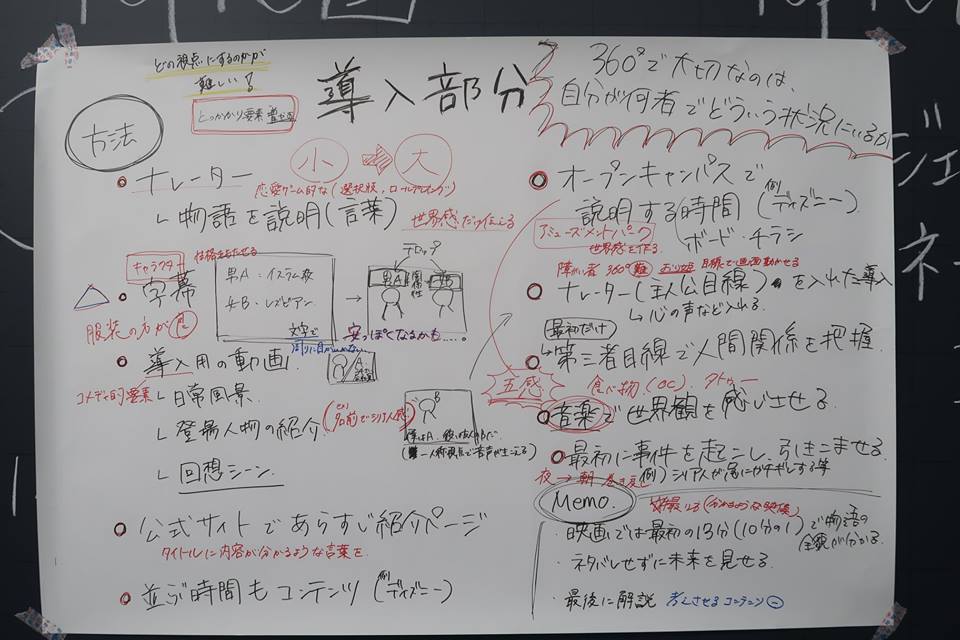 どの視点にするのかが
難しい!
とっかかり要素
導入部分
360°で大切なのは、
自分が何者でどういう状況にいるか
方法
小 ⇨ 大
ナレーター
恋愛ゲーム的な(選択肢、ロールプレイング)
└ 物語を説明(言葉)
世界感だけ伝える
キャラクター
性格をもたせる
字幕
服装の方が
男A:イスラム教
女B:レズビアン
文字で
→
テロップ
男A
安っぽくなるかも.....。
導入用の動画
コメディ的要素
└ 日常風景
└ 登場人物の紹介
(ex) 名前でシリア人感
A
B
僕はA
└ 回想シーン
公式サイトであらすじ紹介ページ
タイトルに内容が分かるような言葉を
並ぶ時間もコンテンツ(例 ディズニー)
オープンキャンパスで
説明する時間(例 ディズニー)
アミューズメントパーク
世界感を作る。
ボード・チラシ
障がい者 360°難
目線で
ナレーター(主人公目線)を入れた導入
└ 心の声など入れる
最初だけ
↳ 第三者目線で人間関係を把握
五感
食べ物(OC)
音楽で世界観を感じさせる
最初に事件を起こし、引きこませる
夜→朝 巻き戻し
例)シリア人が
Memo.
・映画では最初の13分(10分の1)で物語の
全貌が分かる
・ネタバレせずに未来を見せる
・最後に解説 考えさせるコンテンツ